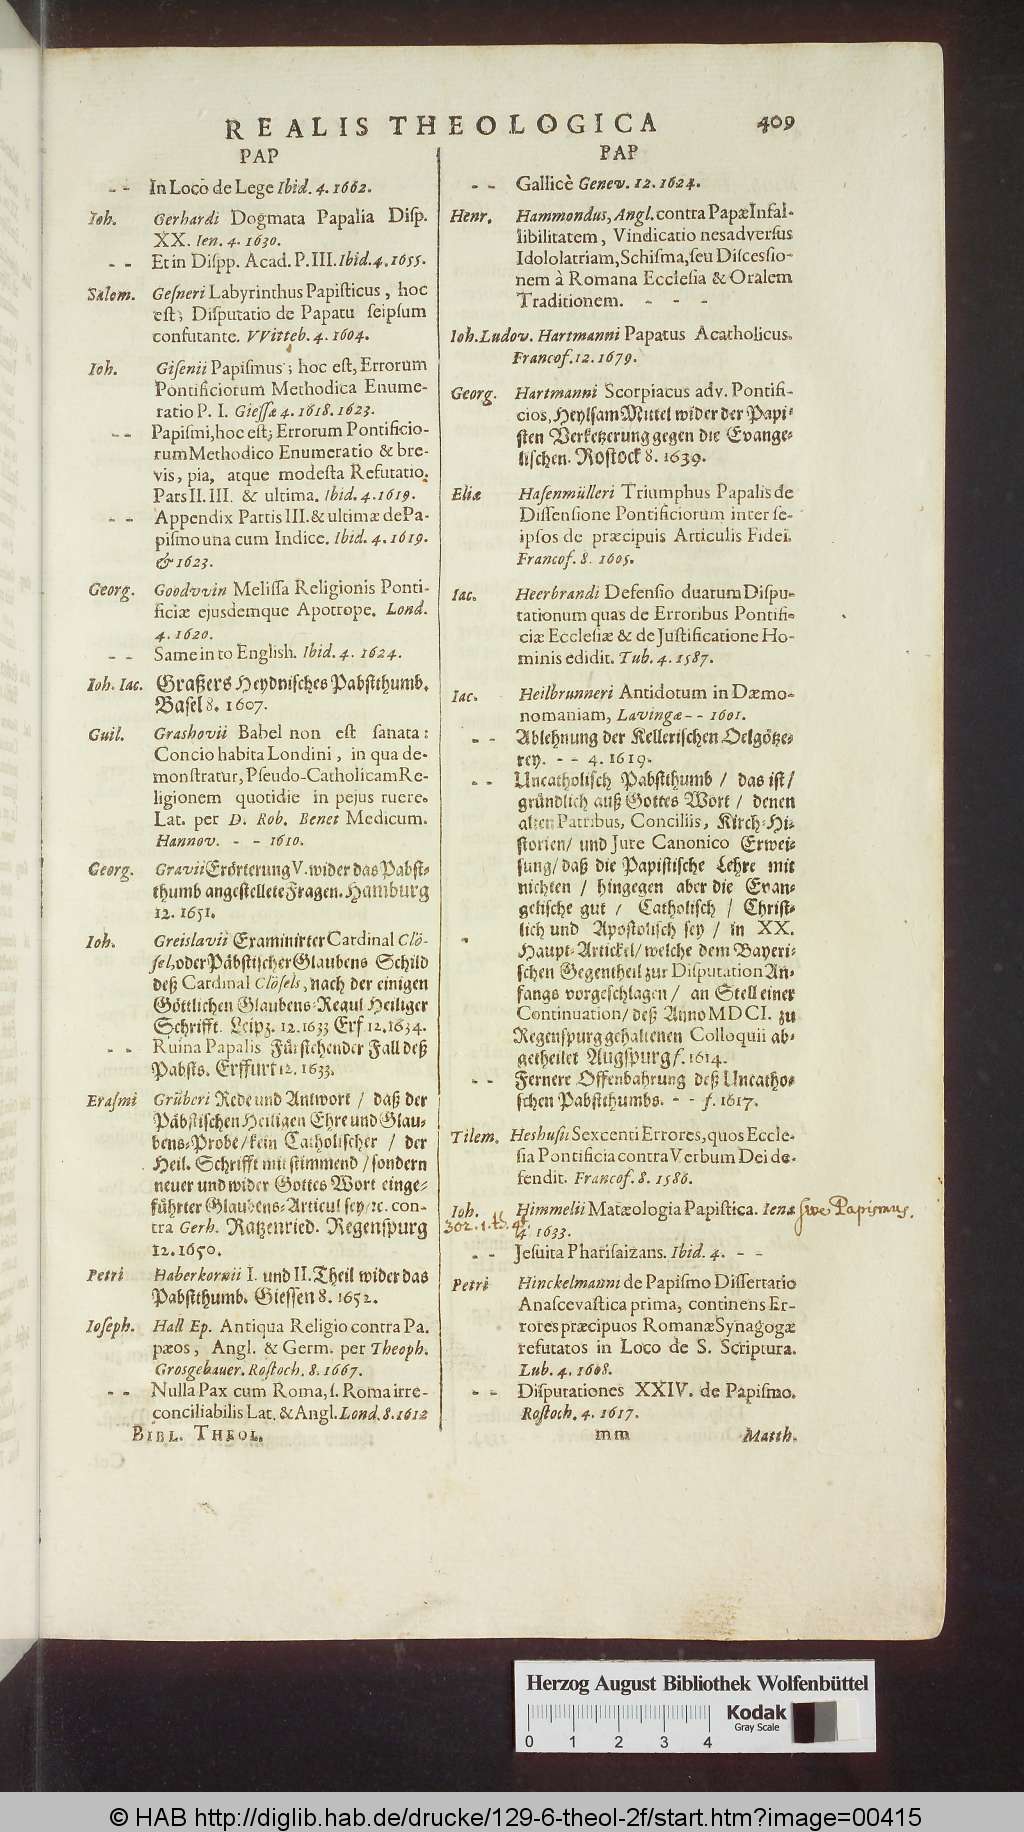 REALIS THEOLOGICA 409
PAP
- - In Loco de Lege Ibid. 4. 1662.
Ioh. Gerhardi Dogmata Papalia Disp.
XX. Ien. 4. 1630.
- - Et in Dispp. Acad. P. III. Ibid. 4. 1655.
Salom. Gesneri Labyrinthus Papisticus, hoc
est; Disputatio de Papatu seipsum
confutante. VVitteb. 4. 1604.
Ioh. Gisenii Papismus; hoc est, Errorum
Pontificiorum Methodica Enume-
ratio P. I. Giessæ 4. 1618. 1623.
- - Papismi, hoc est; Errorum Pontificio-
rum Methodico Enumeratio & bre-
vis, pia, atque modesta Refutatio.
Pars II. III. & ultima. Ibid. 4. 1619.
- - Appendix Partis III. & ultimæ de Pa-
pismo una cum Indice. Ibid. 4. 1619.
& 1623.
Georg. Goodvvin Melissa Religionis Ponti-
ficiæ ejusdemque Apotrope. Lond.
4. 1620.
- - Same in to English. Ibid. 4. 1624.
Ioh. Iac. Graßers Heydnisches Pabstthumb.
Basel 8. 1607.
Guil. Grashovii Babel non est sanata:
Concio habita Londini, in qua de-
monstratur, Pseudo-Catholicam Re-
ligionem quotidie in pejus ruere.
Lat. per D. Rob. Benet Medicum.
Hannov. - - 1610.
Georg. Gravii Erörterung V. wider das Pabst-
thumb angestellete Fragen. Hamburg
12. 1651.
Ioh. Greislavii Examinirter Cardinal Clö-
sel, oder Päbstischer Glaubens Schild
deß Cardinal Clösels, nach der einigen
Göttlichen Glaubens-Regul Heiliger
Schrifft. Leipz. 12. 1633 Erf. 12. 1634.
- - Ruina Papalis Fürstehender Fall deß
Pabsts. Erffurt 12. 1633.
Erasmi Grüberi Rede und Antwort / daß der
Päbstischen Heiligen Ehre und Glau-
bens-Probe / kein Catholischer / der
Heil. Schrifft mitstimmend / sondern
neuer und wider Gottes Wort einge-
führter Glaubens-Articul sey / ꝛc. con-
tra Gerh. Ratzenried. Regenspurg
12. 1650.
Petri Haberkornii I. und II. Theil wider das
Pabstthumb. Giessen 8. 1652.
Ioseph. Hall Ep. Antiqua Religio contra Pa.
pæos, Angl. & Germ. per Theoph.
Grosgebauer. Rostoch. 8. 1667.
- - Nulla Pax cum Roma, s. Roma irre-
conciliabilis Lat. & Angl. Lond. 8. 1612
BIBL. THEOL.
PAP
- - Gallicè Genev. 12. 1624.
Henr. Hammondus, Angl. contra Papæ Infal-
libilitatem, Vindicatio nesadversus
Idololatriam, Schisma, seu Discessio-
nem à Romana Ecclesia & Oralem
Traditionem. - - -
Ioh. Ludov. Hartmanni Papatus Acatholicus.
Francof. 12. 1679.
Georg. Hartmanni Scorpiacus adv. Pontifi-
cios, Heylsam Mittel wider der Papi-
sten Verketzerung gegen die Evange-
lischen. Rostock 8. 1639.
Eliæ Hasenmülleri Triumphus Papalis de
Dissensione Pontificiorum inter se-
ipsos de præcipuis Articulis Fidei.
Francof. 8. 1605.
Iac. Heerbrandi Defensio duatum Dispu-
tationum quas de Erroribus Pontifi-
ciæ Ecclesiæ & de Justificatione Ho-
minis edidit. Tub. 4. 1587.
Iac. Heilbrunneri Antidotum in Dæmo-
nomaniam, Lavingæ - - 1601.
- - Ablehnung der Kellerischen Oelgötze-
rey. - - 4. 1619.
- - Uncatholisch Pabstthumb / das ist /
gründlich auß Gottes Wort / denen
alten Patribus, Conciliis, Kirch-Hi-
storien / und Jure Canonico Erwei-
sung / daß die Papistische Lehre mit
nichten / hingegen aber die Evan-
gelische gut / Catholisch / Christ-
lich und Apostolisch sey / in XX.
Haupt-Artickel / welche dem Bayeri-
schen Gegentheil zur Disputation An-
fangs vorgeschlagen / an Stell einer
Continuation / deß Anno MDCI. zu
Regenspurg gehaltenen Colloquii ab-
getheilet Augspurg f. 1614.
- - Fernere Offenbahrung deß Uncatho-
schen Pabstthumbs. - - f. 1617.
Tilem. Heshusii Sexcenti Errores, quos Eccle-
sia Pontificia contra Verbum Dei de-
fendit. Francof. 8. 1586.
Ioh. Himmelii Matæologia Papistica. Ienæ sive Papismus.
302. 1. th. 4. 1633.
- - Jesuita Pharisaizans. Ibid. 4. - -
Petri Hinckelmanni de Papismo Dissertatio
Anascevastica prima, continens Er-
rores præcipuos Romanæ Synagogæ
refutatos in Loco de S. Scriptura.
Lub. 4. 1608.
- - Disputationes XXIV. de Papismo.
Rostoch. 4. 1617.
mm Matth.
Herzog August Bibliothek Wolfenbüttel
Kodak
Gray Scale
0 1 2 3 4
© HAB http://diglib.hab.de/drucke/129-6-theol-2f/start.htm?image=00415